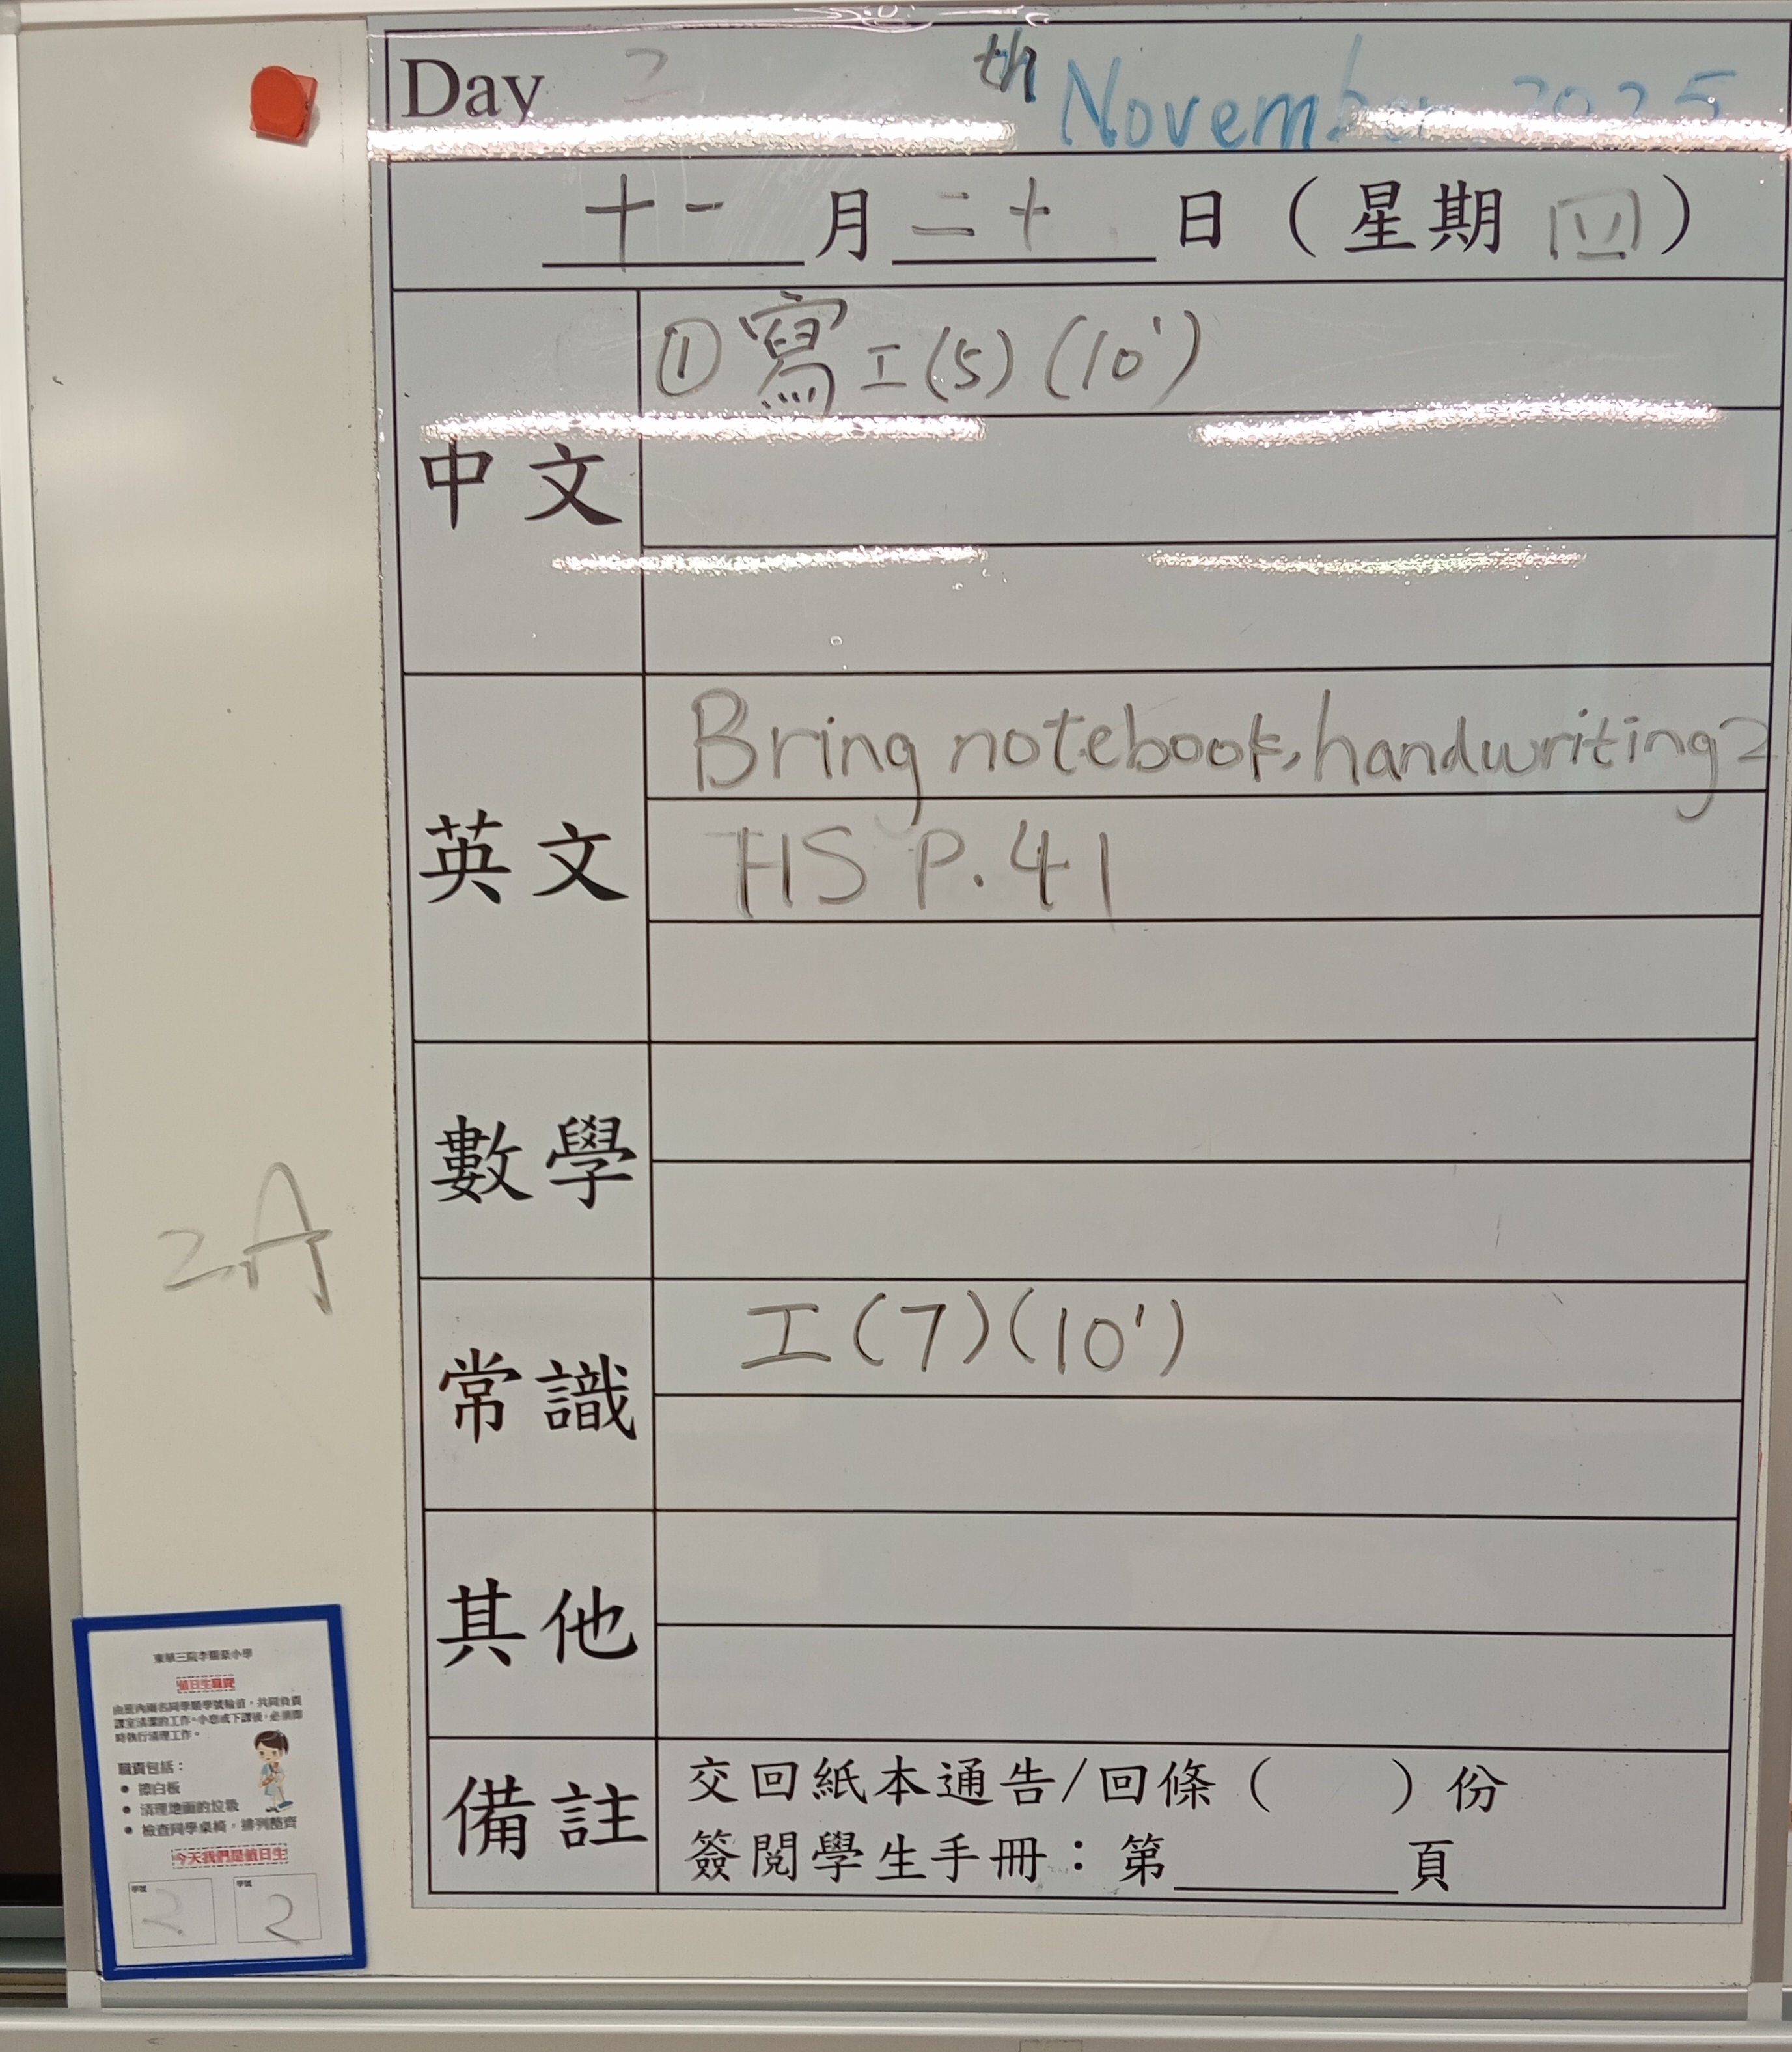 Day 2 th November 2025
十一月二十日（星期四）
中文
①寫工(5)(10')
英文
Bring notebook, handwriting 2
HS P.41
數學
常識
工(7)(10')
其他
備註
交回紙本通告/回條（ ）份
簽閱學生手冊：第 頁
2A
值日生職責
由班內兩名同學順學號輪值，共同負責
課室清潔的工作。小息或下課後，必須即
時執行清理工作。
職責包括：
• 擦白板
• 清理地面的垃圾
• 檢查同學桌椅，排列整齊
今天我們是值日生
學號 學號
2 2